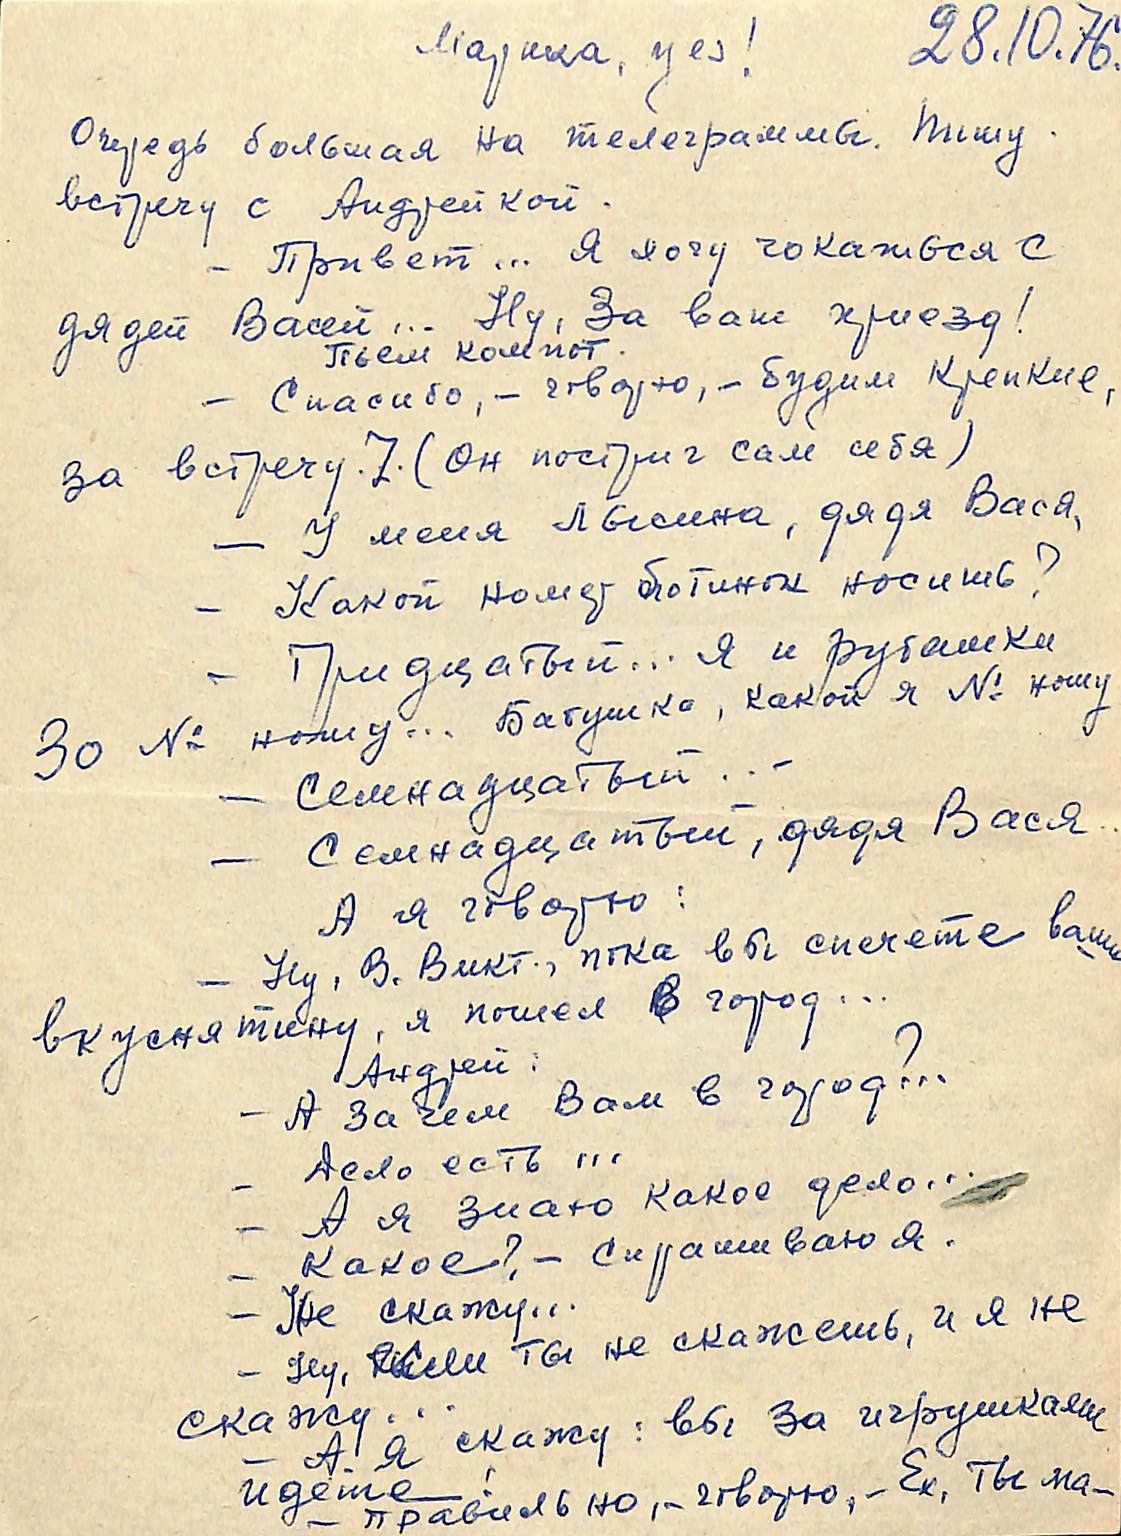 28.10.76.
Маринка, yes!
Очередь большая на телеграммы. Пишу.
встречу с Андрейкой.
- Привет... Я хочу чокаться с
дядей Васей... Ну, За ваш приезд!
Пьем компот.
- Спасибо, - говорю, - будим крепкие,
за встречу. (Он постриг сам себя)
- У меня лысина, дядя Вася,
- Какой номер ботинок носишь?
- Тридцатый... Я и рубашки
30 № ношу... Бабушка, какой я № ношу
- Семнадцатый...-
- Семнадцатый, дядя Вася..
А я говорю:
- Ну, В. Викт., пока вы спечете вашу
вкуснятину, я пошел в город...
Андрей:
- А зачем Вам в город?...
- Дело есть...
- А я знаю какое дело...
- Какое?, - спрашиваю я.
- Не скажу...
- Ну, если ты не скажешь, и я не
скажу...
- А я скажу: вы за игрушками
идёте!
- правильно, - говорю, - Ех, ты ма-